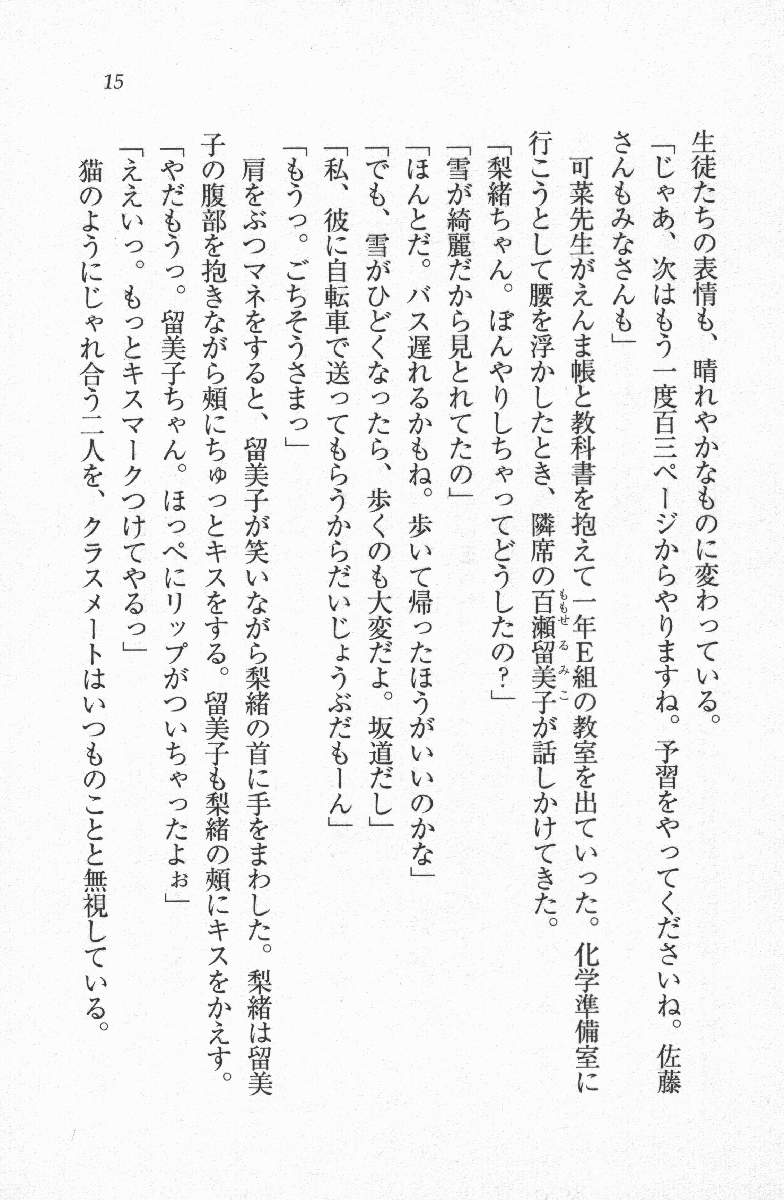 15
生徒たちの表情も、晴れやかなものに変わっている。
「じゃあ、次はもう一度百三ページからやりますね。予習をやってくださいね。佐藤
さんもみなさんも」
可菜先生がえんま帳と教科書を抱えて一年E組の教室を出ていった。化学準備室に
行こうとして腰を浮かしたとき、隣席の百瀬留美子が話しかけてきた。
ももせるみこ
「梨緒ちゃん。ぼんやりしちゃってどうしたの？」
「雪が綺麗だから見とれてたの」
「ほんとだ。バス遅れるかもね。歩いて帰ったほうがいいのかな」
「でも、雪がひどくなったら、歩くのも大変だよ。坂道だし」
「私、彼に自転車で送ってもらうからだいじょうぶだもーん」
「もうっ。ごちそうさまっ」
肩をぶつマネをすると、留美子が笑いながら梨緒の首に手をまわした。梨緒は留美
子の腹部を抱きながら頰にちゅっとキスをする。留美子も梨緒の頰にキスをかえす。
「やだもうっ。留美子ちゃん。ほっぺにリップがついちゃったよぉ」
「ええいっ。もっとキスマークつけてやるっ」
猫のようにじゃれ合う二人を、クラスメートはいつものことと無視している。